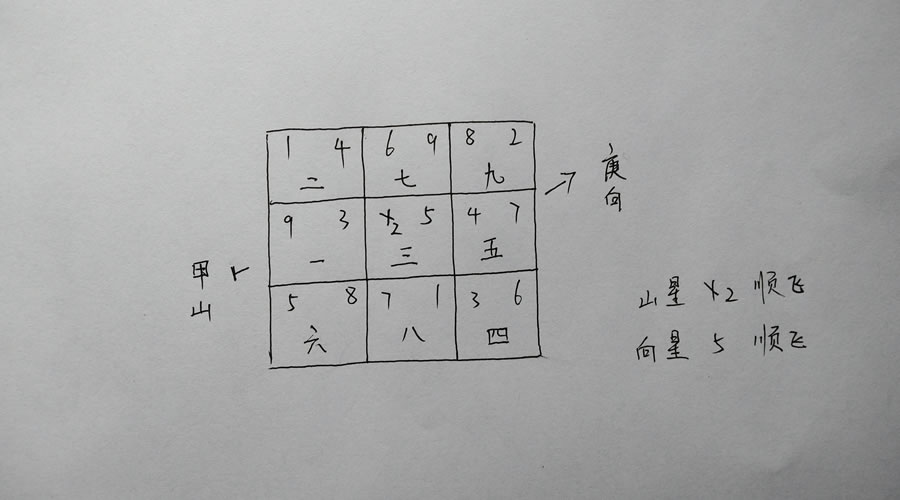 1 4 6 9 8 2
二 七 九
9 3 2 5 4 7
一 三 五
5 8 7 1 3 6
六 八 四
甲山
庚向
山星 2 顺飞
向星 5 顺飞